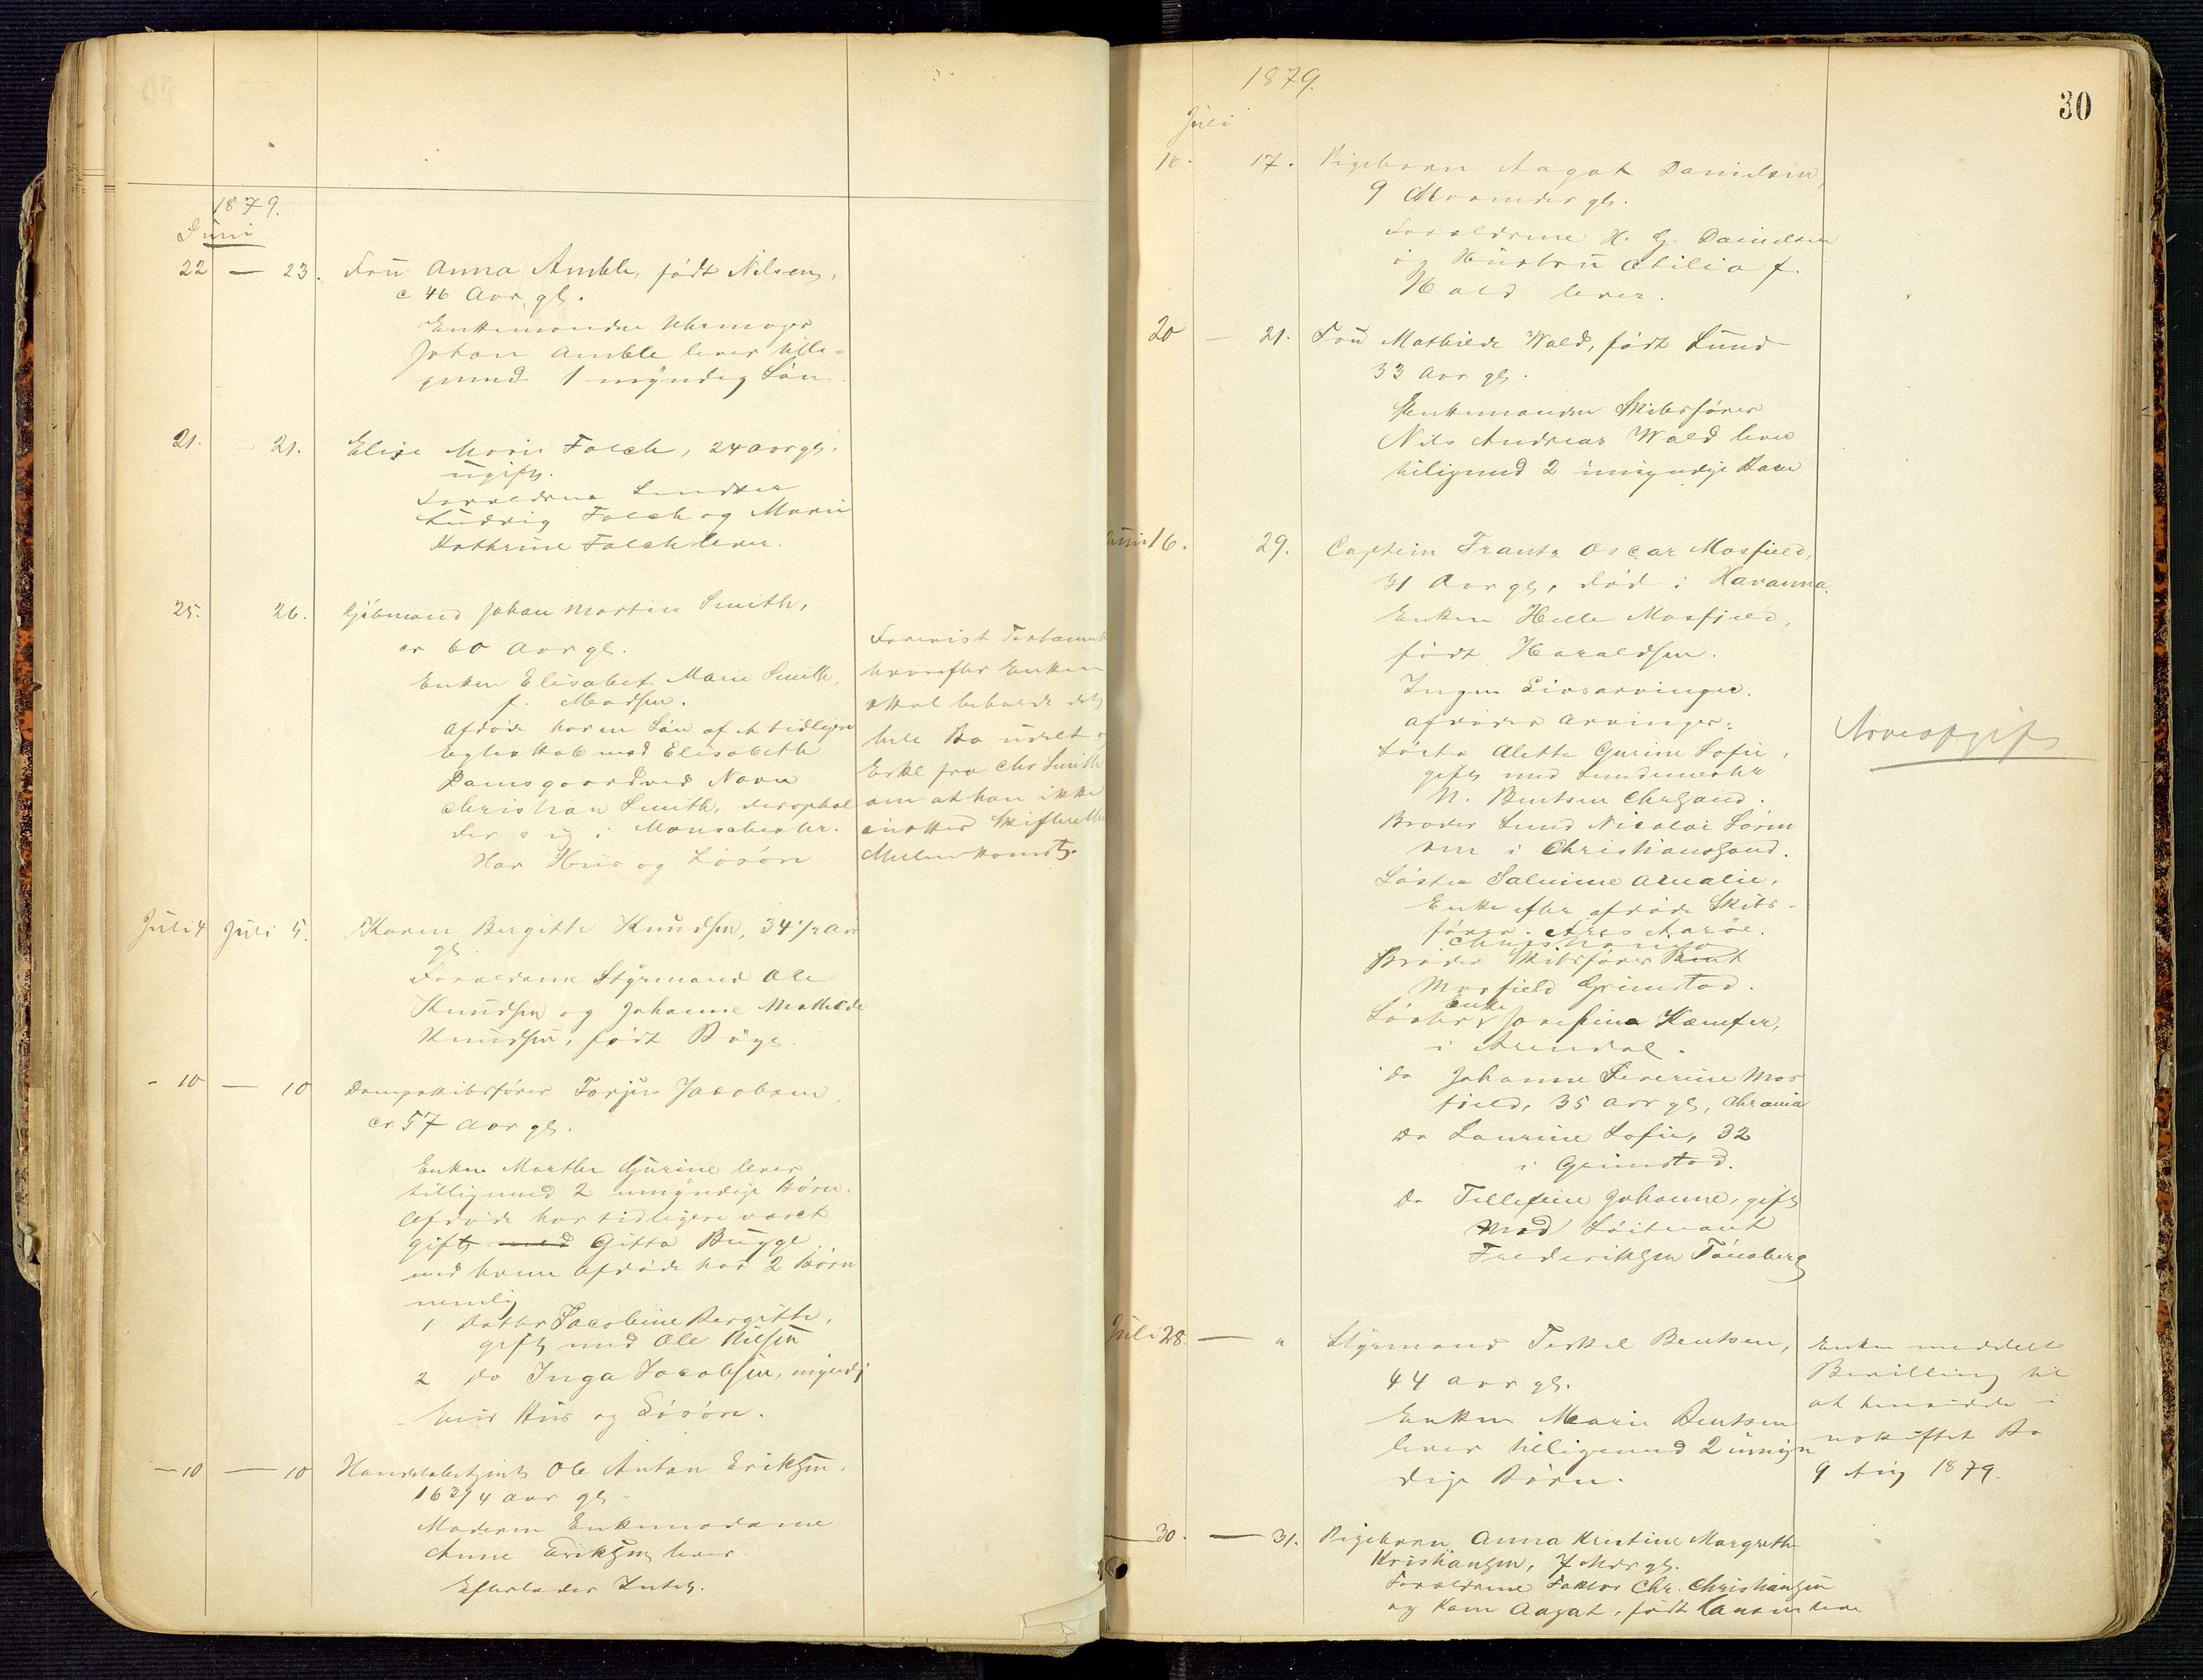 1879.
Juni
22 — 23. Fru Anna Amble, født Nilsen,
c 46 Aar gl.
Enkemanden Uhrmager
Johan Amble lever tille-
gemed 1 myndig Søn
21. 21. Elise Marie Falch, 24 Aar gl.
ugift.
Forældrene
Ludvig Falch og Marie
Kathrine Falch lever.
25. 26. Kjøbmand Johan Martin Smith,
cr 60 Aar gl.
Enken Elisabet Marie Smith,
f. Madsen.
Afdøde har en Søn af et tidligere
Egteskab med Elisabeth
Damsgaard ved Navn
Christian Smith, der ophol
der sig i Manschester.
Har Hus og Løsøre
Forevist Testament
hvorefter Enken
skal beholde det
hele Bo udelt og
Erkl fra Chr Smith
om at han ikke
ønsker Skifteretten
Mellemkomst.
Juli 4 Juli 5. Karen Bergitte Knudsen, 34 1/2 Aar
gl.
Forældrene Styrmand Ole
Knudsen og Johanne Mathilde
Knudsen, født
- 10 — 10 Dampskibsfører Torjus Jacobsen,
cr 57 Aar gl.
Enken Marthe Gurine lever
tilligemed 2 umyndige Børn.
Afdøde har tidligere været
gift med Gitta Bugge
med hvem Afdøde har 2 Børn
nemlig
1 Datter Jacobine Bergitte,
gift med Ole Nilsen
2 do Inga Jacobsen, myndig
Eier Hus og Løsøre.
— 10 — 10 Handelsbetjent Ole Anton Eriksen,
16 3/4 Aar gl
Moderen Enkemadame
Anne Eriksen lever
Efterlader Intet.
30
1879.
Juli
16. 17. Pigebarn Aagot Danielsen,
9 Maaneder gl.
Forældrene H. G. Danielsen
og Hustru Otilia f.
Hald lever.
20 — 21. Fru Mathilde Wald, født Lund
33 Aar gl.
Enkemanden Skibsfører
Nils Andreas Wald lever
tiligemed 2 umyndige Børn
Juni 16. 29. Captein Frantz Oscar Mosfjeld,
31 Aar gl, død i Havanna.
Enken Helle Mosfjeld,
født Haraldsen.
Ingen Livsarvinger.
Afdødes Arvinger:
Søster Alette Gurine Sofie,
gift med
N. Bentsen Chrsand.
Broder Lund Nicolai
i Christianssand.
Søster Salmine Amalie,
Enke efter afdøde Skibs-
fører Aarøe.
Broder Skibsfører Bent
Mosfjeld Grimstad.
Enke
Søster Josefina Kæmfer,
i Arendal.
do Johanne Severine Mos
fjeld, 35 Aar gl, Chrania
do Laurine Sofie, 32
i Grimstad.
do Tellefine Johanne, gift
med Løitnant
Frederiksen Tønsberg
Arveafgift
Juli 28. — " Styrmand Terkel Bentsen,
44 Aar gl.
Enken Marie Bentsen
lever tilligemed 2 umyn
dige Børn.
Enken meddelt
Bevilling til
at hensidde i
uskiftet Bo
9 Aug 1879.
— 30. — 31. Pigebarn Anna Kristine Margrethe
Kristiansen, 7 Mdr gl.
Forældrene Faktor Chr. Christiansen
og Kone Aagat, født Hansen lever